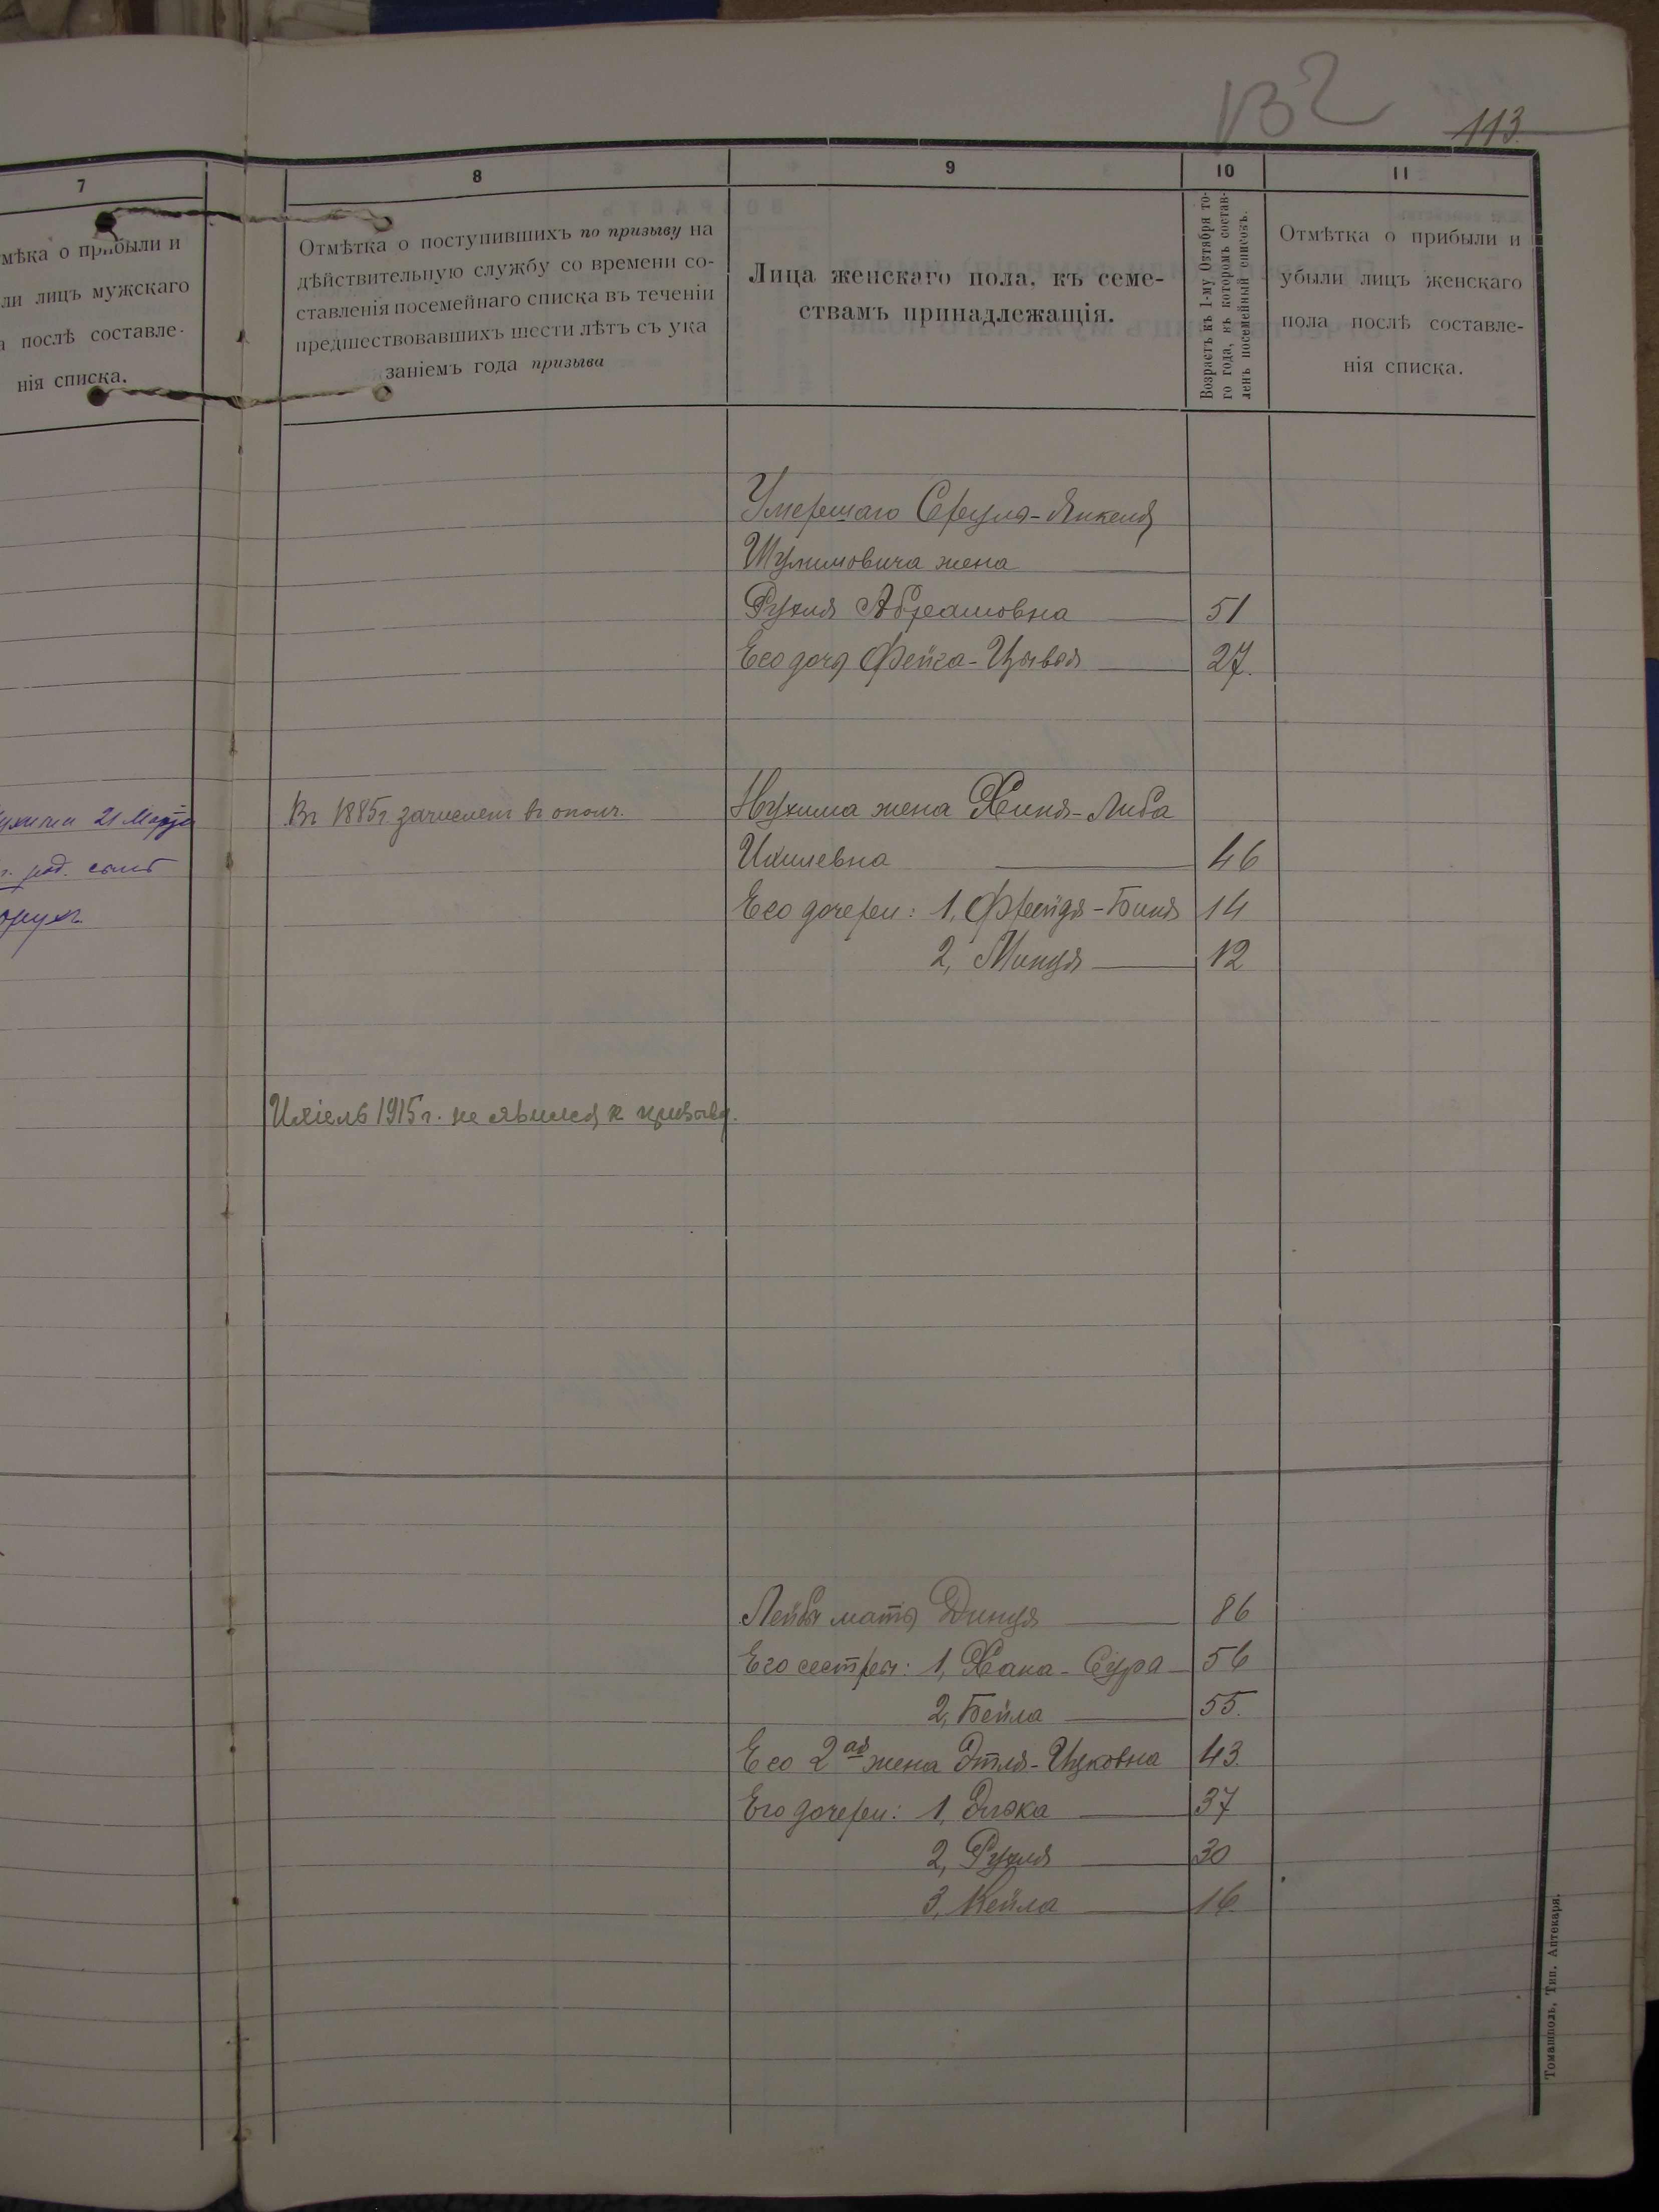 132
113.
7
8
9
10
11
мѣка о прибыли и
ли лицъ мужскаго
а послѣ составле-
нія списка.
Отмѣтка о поступившихъ по призыву на
дѣйствительную службу со времени со-
ставленія посемейнаго списка въ теченіи
предшествовавшихъ шести лѣтъ съ ука
заніемъ года призыва
Лица женскаго пола, къ семе-
ствамъ принадлежащія.
Возрастъ къ 1-му Октября то-
го года, къ которомъ состав-
ленъ посемейный списокъ.
Отмѣтка о прибыли и
убыли лицъ женскаго
пола послѣ составле-
нія списка.
Умершаго Сруля-Янкеля
Шулимовича жена
Рухля Абрамовна 51
Его дочь Фейга-Цывья 27.
21 Марта
г. род. сынъ
Въ 1885г зачисленъ въ ополч.
Нухима жена Хиня-Либа
Ихилевна 46
Его дочери: 1, Фрейдя-Биня 14
2, Миндя 12
Ихіель 1915 г. не явился к призыву.
Лейбы мать Диндя 86
Его сестры: 1, Хана-Сура 56
2, Бейла 55.
Его 2ая жена Этля-Ицковна 43.
Его дочери: 1, Элька 37
2, Рухля 30
3, Кейла 16
Томашполь, Тип. Аптекаря.